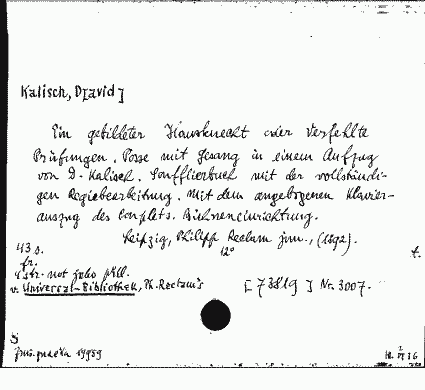 Kalisch, D[avid]
Ein gebildeter Hausknecht oder verfehlte
Prüfungen. Posse mit Gesang in einem Aufzug
von D. Kalisch. Soufflierbuch mit der vollständi-
gen Regiebearbeitung. Mit dem angebogenen Klavier-
auszug des Couplets. Bühneneinrichtung.
Leipzig, Philipp Reclam jun., (1892).
43 s. 12° t.
fr.
4 str. not jako příl.
v. Universal-Bibliothek, Ph. Reclam's [73819] Nr. 3007.
S
19989